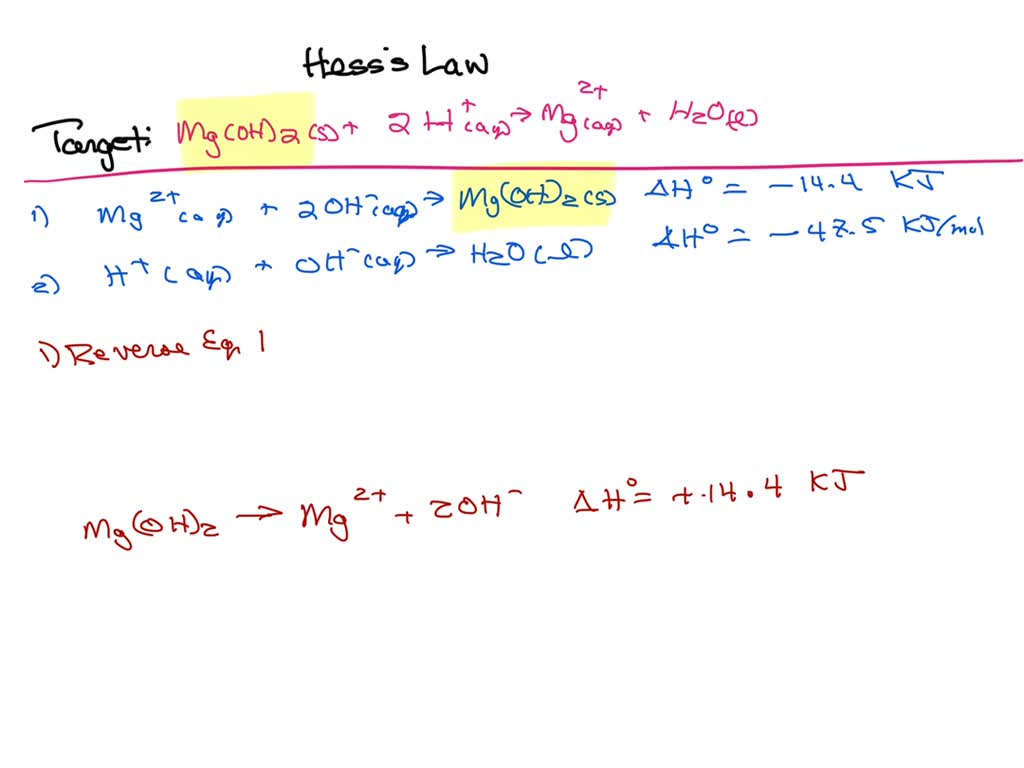 Hess's Law
Target: Mg(OH)2(s) + 2H⁺(aq) → Mg²⁺(aq) + H2O(l)
1) Mg²⁺(aq) + 2OH⁻(aq) → Mg(OH)2(s) ΔH° = -14.4 KJ
2) H⁺(aq) + OH⁻(aq) → H2O(l) ΔH° = -47.5 KJ/mol
1) Reverse Eq. 1
Mg(OH)2 → Mg²⁺ + 2OH⁻ ΔH° = +14.4 KJ